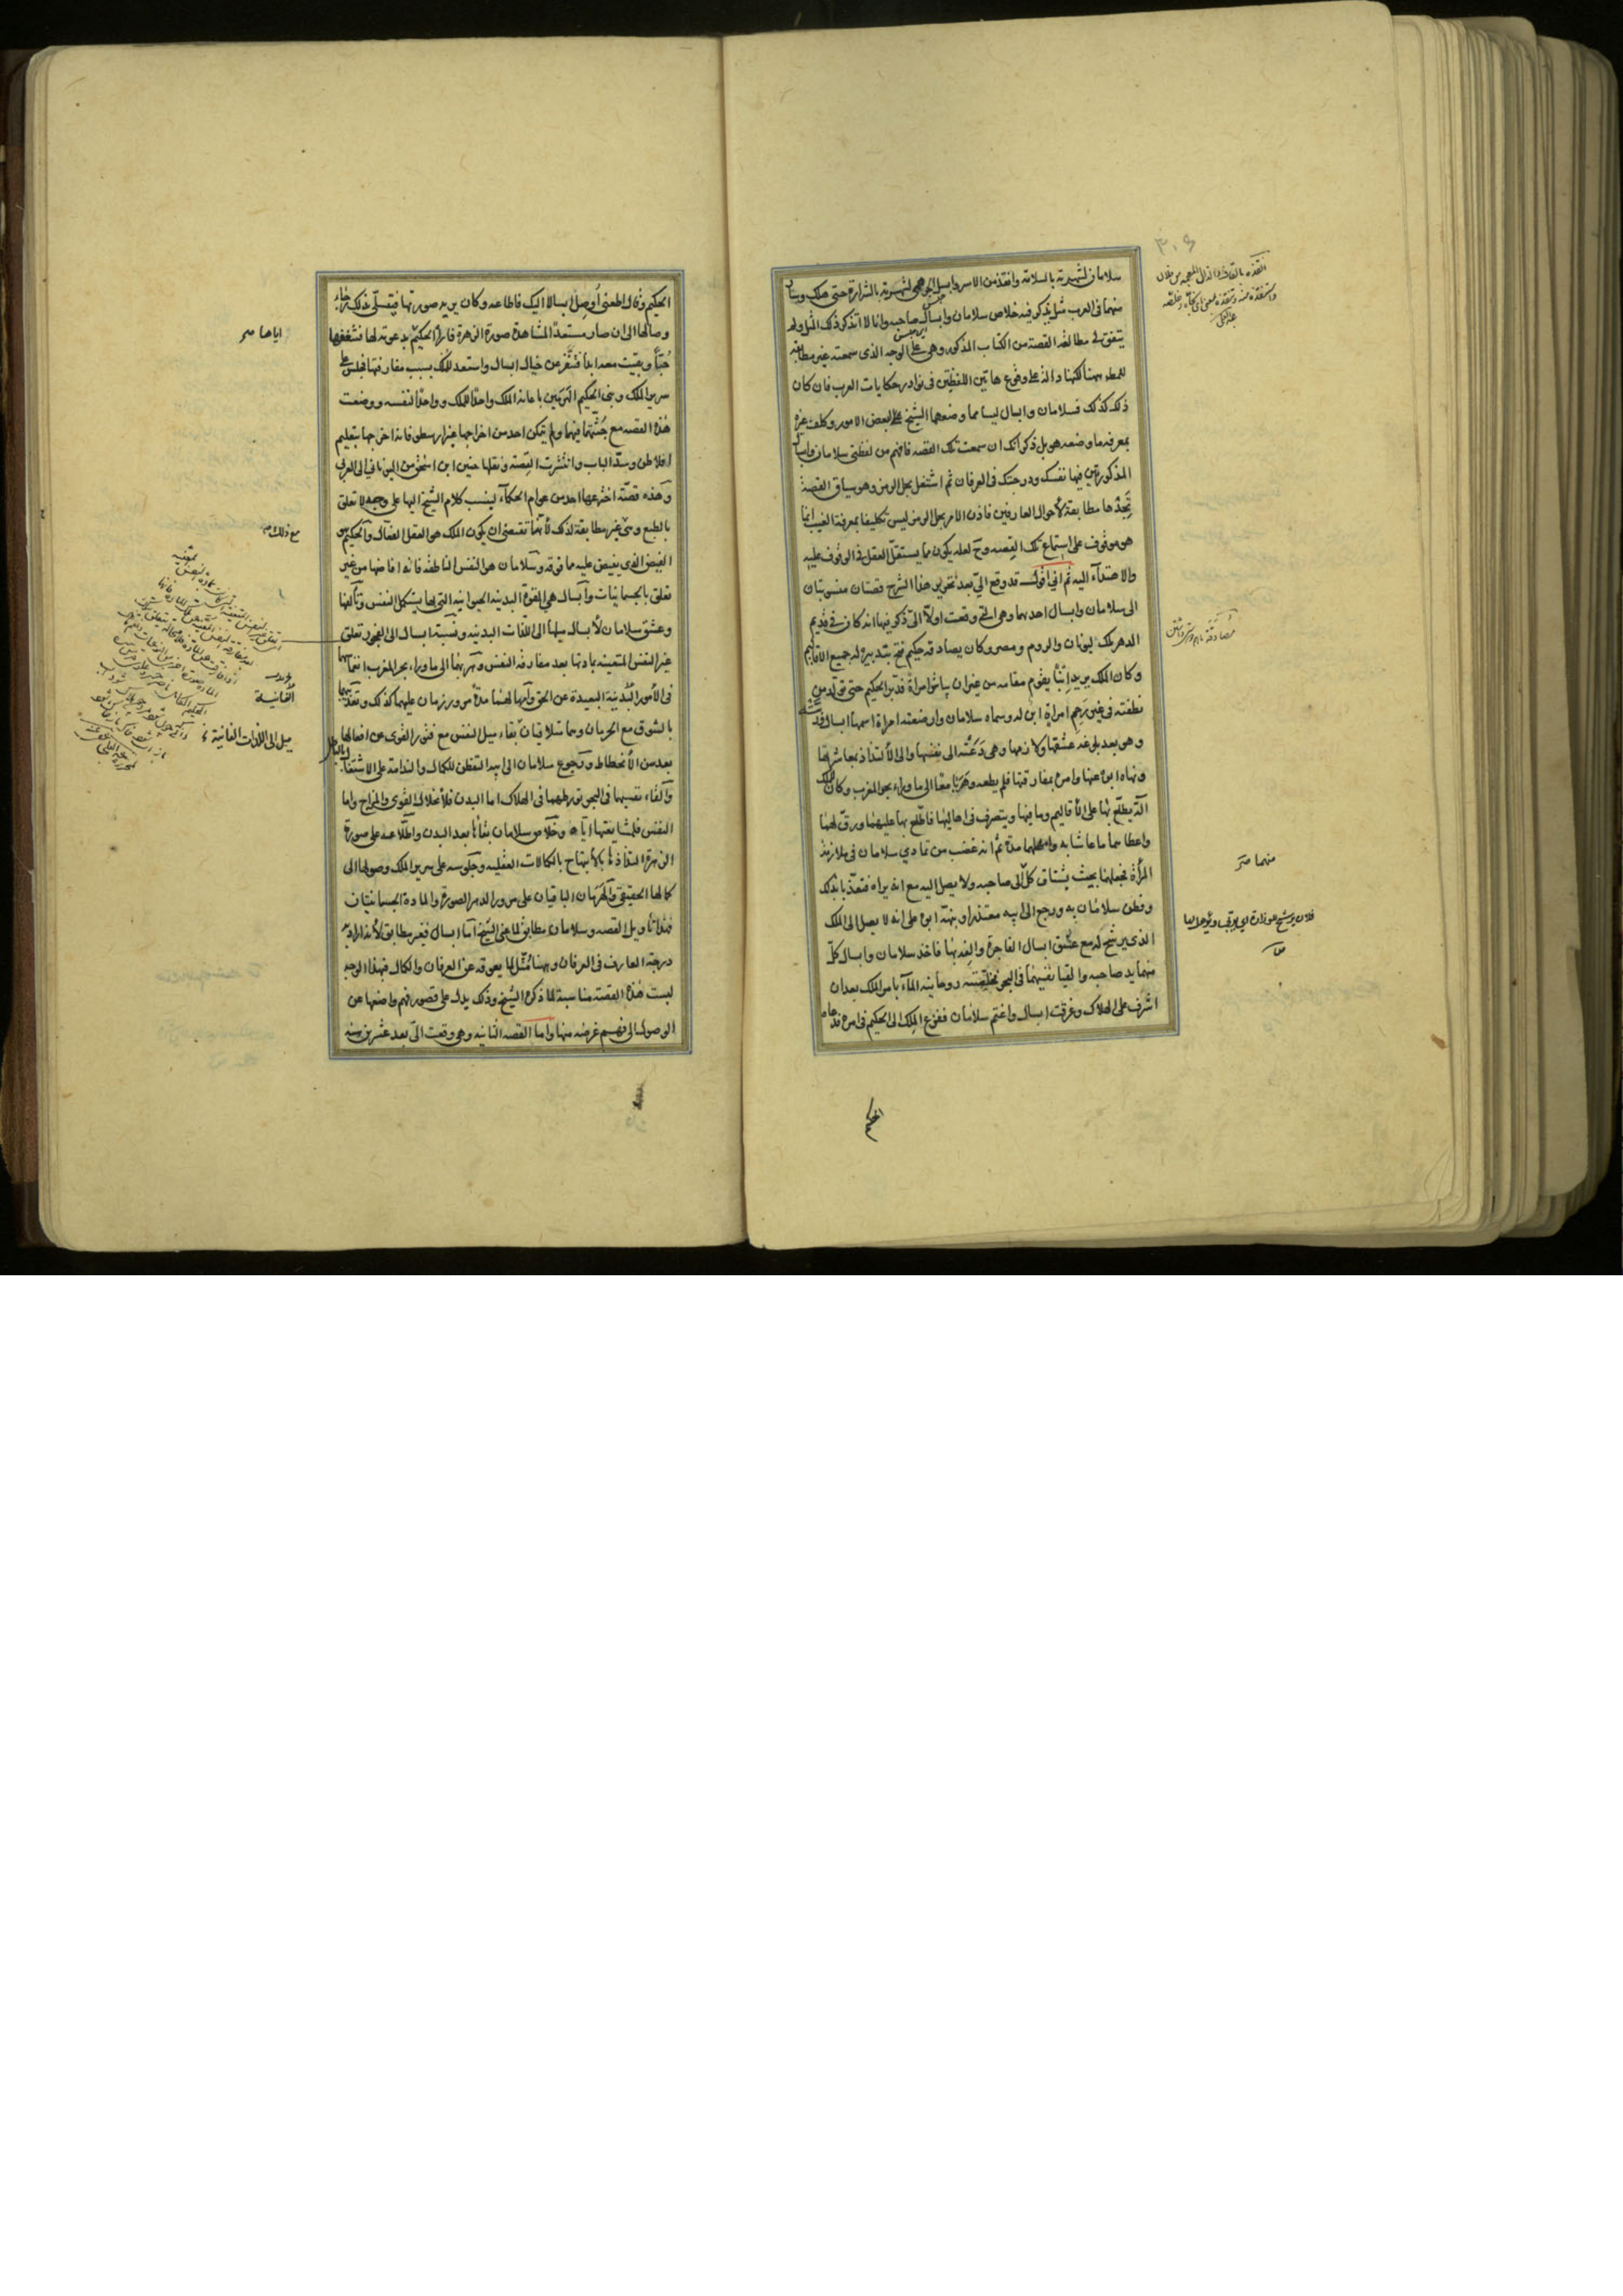 سلامان لشهرته بالسلامة وانقذ من الاسر وابسل الجرهمي لشهرته بالشرارة حتى هلك وسار
منهما في العرب مثل يذكر فيه خلاص سلامان وابسال صاحبه وانا لا اتذكر ذلك المثل ولم
يتفق لي مطالعة القصة من الكتاب المذكور وهي على الوجه الذي سمعته غير مطابقة
للمطلوب ههنا لكنها دالة على وقوع هاتين اللفظتين في نوادر حكايات العرب فان كان
ذلك كذلك فسلامان وابسال ليسا مما وضعهما الشيخ على بعض الامور وكلف غيره
بمعرفة ما وضعه هو بل ذكر انك ان سمعت تلك القصة فافهم من لفظتي سلامان وابسال
المذكورتين فيها نفسك ودرجتك في العرفان ثم اشتغل بحل الرمز وهو سياق القصة
تجدها مطابقة لأحوال العارفين فاذن الامر بحل الرمز ليس تكليفا بمعرفة الغيب انما
هو موقوف على استماع تلك القصة وح لعله يكون مما يستقل العقل في الوقوف عليه
والاهتدآء اليه ثم اني اقول قد وقع الي بعد تحرير هذا الشرح قصتان منسوبتان
الى سلامان وابسال احدهما وهي التي وقعت اولا الي ذكر فيها انه كان في قديم
الدهر ملك ليونان والروم ومصر وكان يصادقه حكيم فتح بتدبيره له جميع الاقاليم
وكان الملك يريد ابنا يقوم مقامه من غير ان يباشر امراة فدبر الحكيم حتى تولد من
نطفته في غير رحم امراة ابن له وسماه سلامان وارضعته امراة اسمها ابسال وربته
وهو بعد بلوغه عشقها ولازمها وهي دعته الى نفسها والى الالتذاذ بمعاشرتها
ونهاه ابوه عنها وامره بمفارقتها فلم يطعه وهربا معا الى ما وراء بحر المغرب وكان للملك
آلة يطلع بها على الأقاليم وما فيها ويتصرف في اهاليها فاطلع بها عليهما ورق لهما
واعطاهما ما عاشا به واهملهما مدة ثم انه غضب من تمادي سلامان في ملازمة
المرأة فجعلهما بحيث يشتاق كل الى صاحبه ولا يصل اليه مع انه يراه فتعذبا بذلك
وفطن سلامان به ورجع الى ابيه معتذرا ونبهه ابوه على انه لا يصل الى الملك
الذي يرشح له مع عشق ابسال الفاجرة والفه بها فاخذ سلامان وابسال كل
منهما يد صاحبه والقيا نفسيهما في البحر فخلصته روحانية المآء بامر الملك بعد ان
اشرف على الهلاك وغرقت ابسال واغتم سلامان ففزع الملك الى الحكيم في امره فدعاه
الحكيم
منهما صح
الحكيم وقال اطعني اوصل ابسالا اليك فاطاعه وكان يريه صورتها فيتسلى بذلك رجاء
وصالها الى ان صار مستعدا لمشاهدة صورة الزهرة فاراها الحكيم بدعوته لها فشغفها
حبا وبقيت معه ابدا فتنفر عن خيال ابسال واستعد للملك بسبب مفارقتها فجلس على
سرير الملك وبنى الحكيم الهرمين باعانة الملك واحدا للملك وواحدا لنفسه ووضعت
هذه القصة مع جثتهما فيهما ولم يتمكن احد من اخراجها غير ارسطو فانه اخرجها بتعليم
افلاطن وسد الباب وانتشرت القصة ونقلها حنين ابن اسحق من اليوناني الى العربي
وهذه قصة اخترعها احد من عوام الحكمآء لينسب كلام الشيخ اليها على وجه لا تعلق
بالطبع وهي غير مطابقة لذلك لأنها تقتضي ان يكون الملك هو العقل الفعال والحكيم هو
الفيض الذي يفيض عليه مما فوقه وسلامان هو النفس الناطقة فانه افاضها من غير
تعلق بالجسمانيات وابسال هي القوة البدنية الحيوانية التي بها يستكمل النفس وتألفها
وعشق سلامان لابسال ميلها الى اللذات البدنية ونسبة ابسال الى الفجور تعلق
غير النفس المتعينة بمادتها بعد مفارقة النفس وهربهما الى ما وراء بحر المغرب انغماسهما
في الأمور البدنية البعيدة عن الحق واهمالهما مدة مرور زمان عليهما كذلك وتعذيبهما
بالشوق مع الحرمان وهما متلاقيان بقاء ميل النفس مع فتور القوى عن افعالها
بعد سن الأنحطاط ورجوع سلامان الى ابيه التفطن للكمال والندامة على الاشتغال بالباطل
والقاء نفسيهما في البحر تورطهما في الهلاك اما البدن فلأنحلال القوى والمزاج واما
النفس فلمشايعتها اياه وخلاص سلامان بقاؤها بعد البدن واطلاعه على صورة
الزهرة التذاذها بالأبتهاج بالكمالات العقلية وجلوسه على سرير الملك وصولها الى
كمالها الحقيقي والهرمان الباقيان على مرور الدهر الصورة والمادة الجسمانيتان
فهذا تأويل القصة وسلامان مطابق لما عنى الشيخ اما ابسال فغير مطابق لأنه اراد به
درجة العارف في العرفان وههنا مثل لما يعوقه عن العرفان والكمال فبهذا الوجه
ليست هذه القصة مناسبة لما ذكره الشيخ وذلك يدل على قصور فهم واضعها عن
الوصول الى فهم غرضه منها واما القصة الثانية وهي وقعت الي بعد عشرين سنة
اياها صح
مع ذلك
الفانية
ميل الى اللذات الفانية